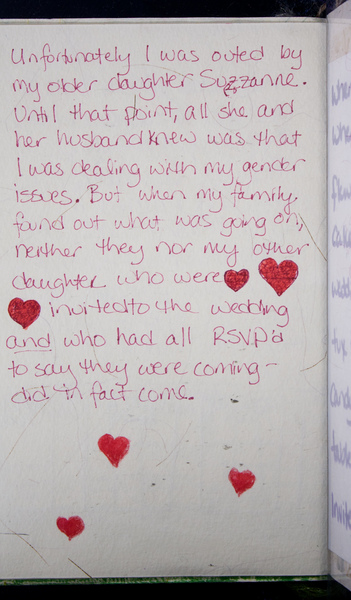 Unfortunately I was outed by
my older daughter Suzzanne.
Until that point, all she and
her husband knew was that
I was dealing with my gender
issues. But when my family,
found out what was going on,
neither they nor my other
daughter who were
invited to the wedding
and who had all RSVP'd
to say they were coming-
did in fact come.